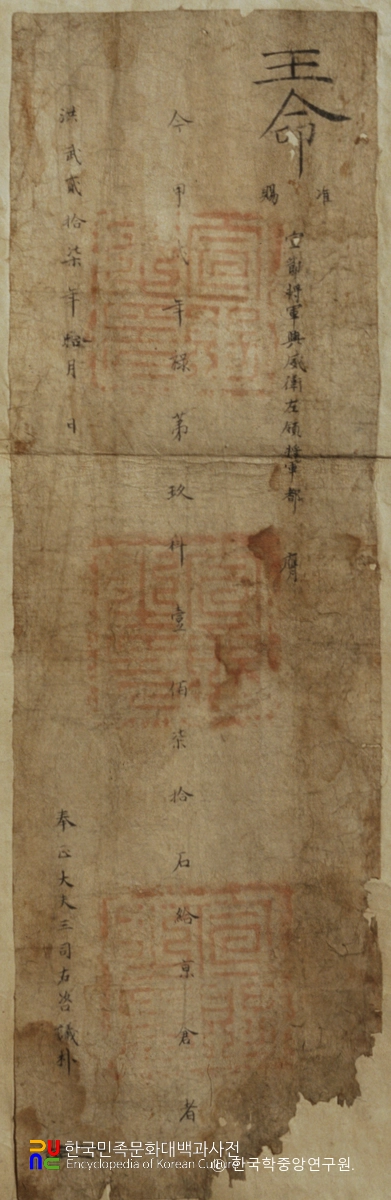 王命
准
賜
宣節將軍興威衛左領將軍都膺
今甲戌年祿第玖科壹佰柒拾石給京倉者
洪武貳拾柒年拾月日
奉正大夫三司右咨議朴
한국민족문화대백과사전
Encyclopedia of Korean Culture
© 한국학중앙연구원.